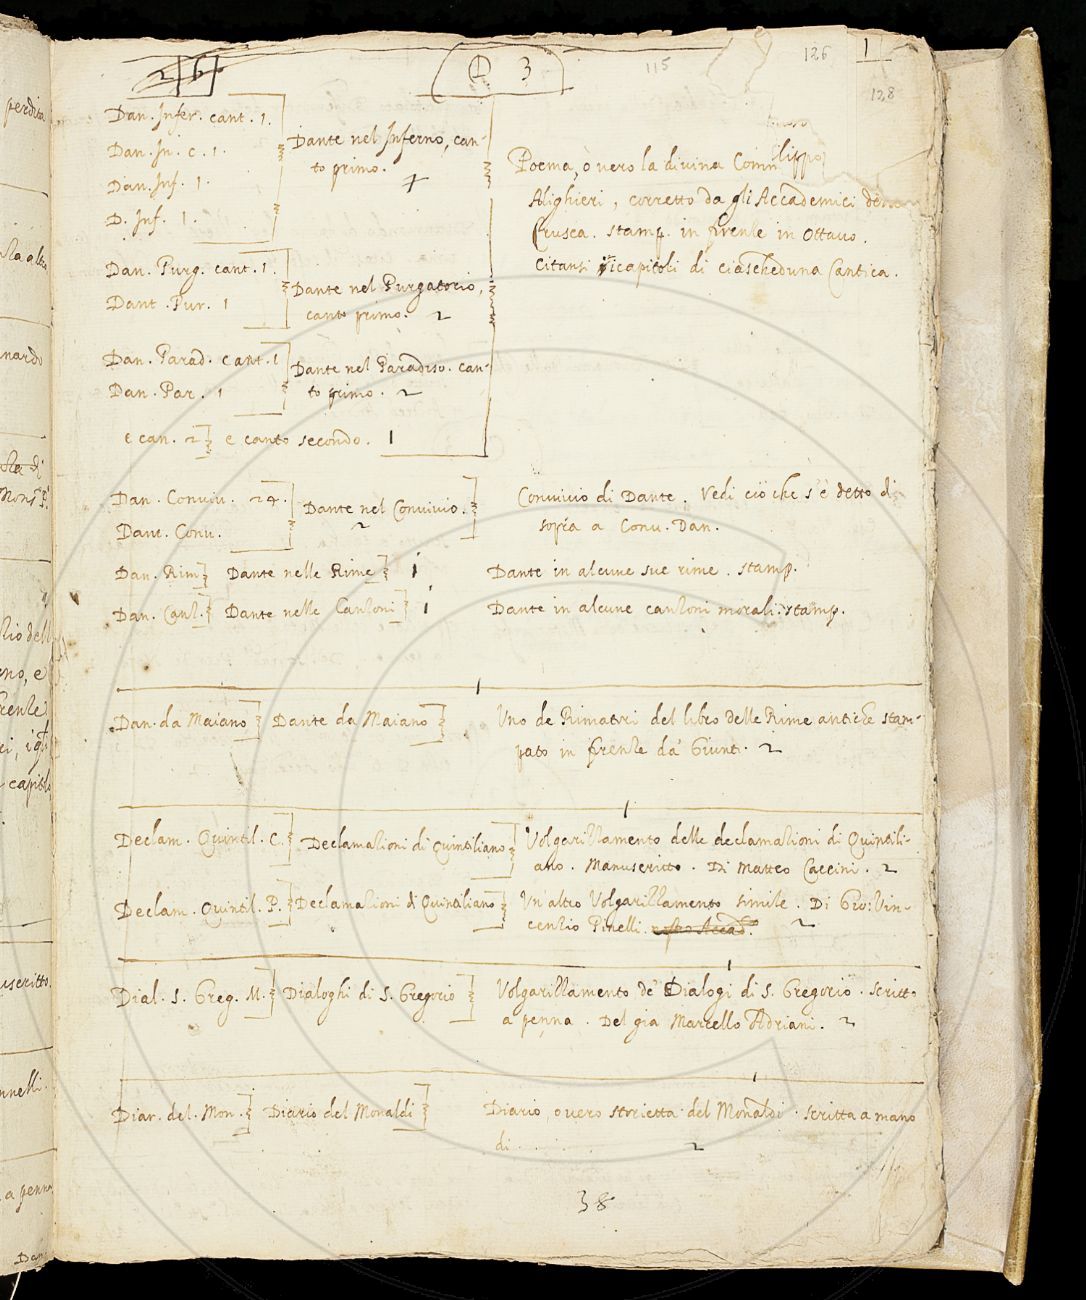 26
D 3
115
126
1
128
Dan. Infer. cant. 1.
Dan. In. c. 1.
Dan. Inf. 1.
D. Inf. 1.
Dante nel Inferno, can-
to primo.
Poema, o vero la divina Com
Alighieri, corretto da gli Accademici della
Crusca. stamp. in firenze in Ottavo.
Citansi i capitoli di ciascheduna Cantica.
Dan. Purg. cant. 1.
Dant. Pur. 1
Dante nel Purgatorio,
canto primo. 2
Dan. Parad. cant. 1
Dan. Par. 1
Dante nel Paradiso. can-
to primo. 2
e can. 2 e canto secondo. 1
Dan. Conviv. 24.
Dant. Conv.
Dante nel Convivio.
2
Convivio di Dante. Vedi ciò che s'è detto di
sopra a Conv. Dan.
Dan. Rim Dante nelle Rime 1 Dante in alcune sue rime. stamp.
Dan. Canz. Dante nelle Canzoni 1 Dante in alcune canzoni morali. stamp.
1
Dan. da Maiano Dante da Maiano Uno de Rimatori del libro delle Rime antiche stam-
pato in firenze da' Giunti. 2
1
Declam. Quintil. C. Declamazioni di Quintiliano Volgarizzamento delle declamazioni di Quintili-
ano. Manuscritto. Di Matteo Caccini. 2
Declam. Quintil. P. Declamazioni di Quintiliano Un altro Volgarizzamento simile. Di Gio: Vin-
cenzio Pinelli. nostro Accad. 2
1
Dial. S. Greg. M. Dialoghi di S. Gregorio Volgarizzamento de' Dialogi di S. Gregorio. scritto
a penna. Del gia Marcello Adriani. 2
1
Diar. del. Mon. Diario del Monaldi Diario, o vero storietta del Monaldi. scritta a mano
di . . . . 2
38